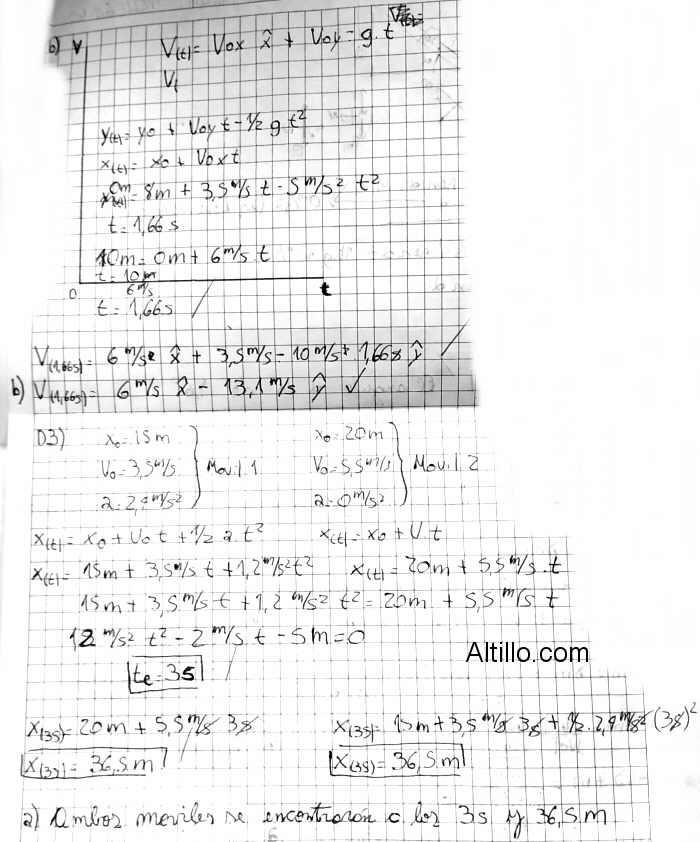 b) V
V(t)= Vox x̂ + Voy - g.t
V(
y(t)= yo + Voy t - 1/2 g t²
x(t)= xo + Vox t
0m = 8m + 3,5 m/s t - 5 m/s² t²
t = 1,66 s
10m = 0m + 6 m/s t
t = 10m
6 m/s
0
t
t = 1,66s
V(1,66s)= 6 m/s x̂ + 3,5 m/s - 10 m/s² 1,66s ŷ
b) V(1,66s)= 6 m/s x̂ - 13,1 m/s ŷ ✓
D3) xo = 15m } xo = 20m }
Vo = 3,5 m/s } Movil 1 Vo = 5,5 m/s } Movil 2
a = 2,4 m/s² } a = 0 m/s² }
x(t)= xo + Vo t + 1/2 a t² x(t)= xo + V.t
x(t)= 15m + 3,5 m/s t + 1,2 m/s² t² x(t)= 20m + 5,5 m/s . t
15m + 3,5 m/s t + 1,2 m/s² t² = 20m + 5,5 m/s t
1,2 m/s² t² - 2 m/s t - 5m = 0
Altillo.com
te = 3s
x(3s)= 20m + 5,5 m/s 3s x(3s)= 15m + 3,5 m/s 3s + 1/2 . 2,4 m/s² (3s)²
x(3s) = 36,5m x(3s) = 36,5m
a) Ambos moviles se encontrarón a los 3s y 36,5m